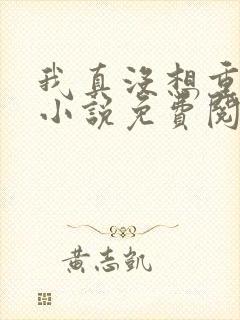 我真没想重
小说免费阅
黄志凯